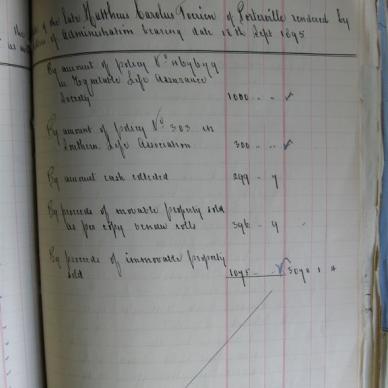 of the late Matthus Carolus Tocien of Porterville rendered by
of Administration bearing date 12th Sept 1895
By amount of policy No
in Equitable Life Assurance
Society 1000 - -
By amount of policy No 303 in
Southern Life Association 300 - -
By amount cash collected 299 - 7
By proceeds of movable property sold
as per copy vendue rolls 396 - 9
By proceeds of immovable property
sold 1095 - -